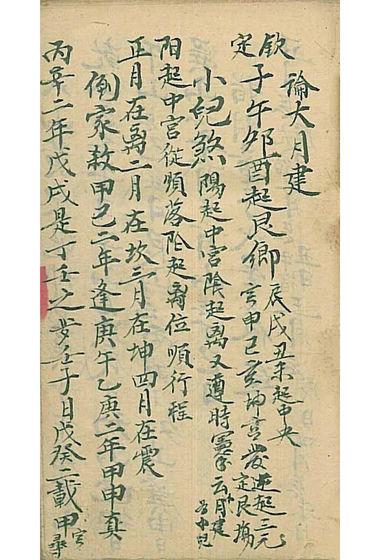 論大月建
欽定子午卯酉起艮鄉 辰戌丑未起中央 寅申巳亥坤宮發 逆起三元
小兒煞陽起中宮陰起离又遵時憲云月建
阳起中宮從順落阴起离位順行程
正月在离二月在坎三月在坤四月在震
例家赦甲己二年逢庚午乙庚二年甲申真
丙辛二年戊戌是丁壬之岁壬子日戊癸二載甲寅尋